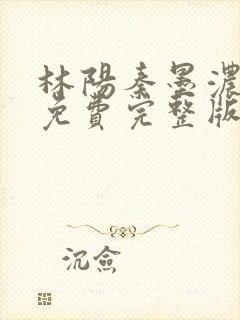 林陽秦墨濃
免費完整版
沉僉